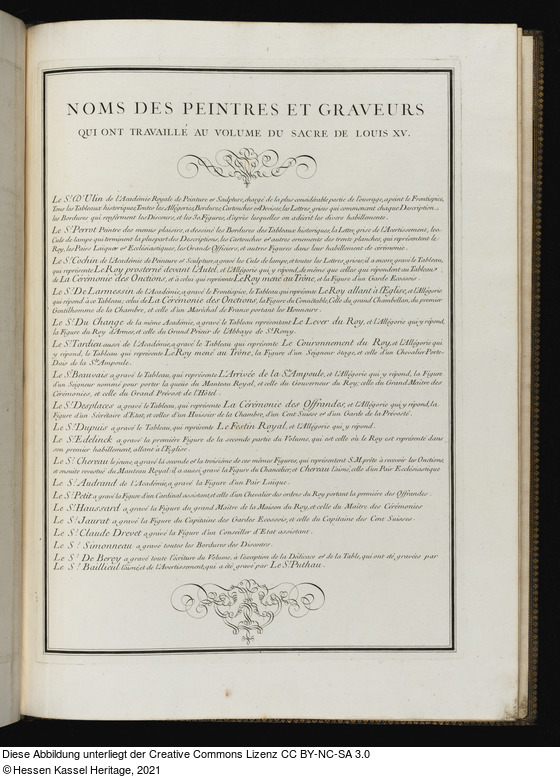 NOMS DES PEINTRES ET GRAVEURS
QUI ONT TRAVAILLÉ AU VOLUME DU SACRE DE LOUIS XV.
Le Sr. D'Ulin de l'Académie Royale de Peinture et Sculpture, chargé de la plus considérable partie de l'ouvrage, a peint le Frontispice,
Tous les Tableaux historiques, Toutes les Allégories, Bordures, Cartouches et Devises, les Lettres grises qui commencent chaques Description,
les Bordures qui renferment les Discours, et les 30. Figures, d'après lesquelles on a décrit les divers habillements.
Le Sr. Perrot Peintre des menus plaisirs, a dessiné les Bordures des Tableaux historiques, la Lettre grise de l'Avertissement, les
Culs de lampe qui terminent la pluspart des Descriptions, les Cartouches et autres ornements des trente planches, qui représentent le
Roy, les Pairs Laïques et Ecclésiastiques, les Grands Officiers, et autres Figures dans leur habillement de cérémonie.
Le Sr. Cochin de l'Académie de Peinture et Sculpture, a gravé les Culs de lampe, et toutes les Lettres grises; il a encore gravé le Tableau,
qui représente Le Roy prosterné devant l'Autel, et l'Allégorie qui y répond, de même que celles qui répondent au Tableau
de La Cérémonie des Onctions, et à celui qui représente Le Roy mené au Trône, et la Figure d'un Garde Ecossois.
Le Sr. De Larmessin de l'Académie, a gravé le Frontispice, le Tableau qui représente Le Roy allant à l'Eglise, et l'Allégorie
qui répond à ce Tableau; celui de La Cérémonie des Onctions, la Figure du Connétable, Celle du grand Chambellan, du premier
Gentilhomme de la Chambre, et celle d'un Maréchal de France portant les Honneurs.
Le Sr. Du Change de la même Académie, a gravé le Tableau représentant Le Lever du Roy, et l'Allégorie qui y répond,
la Figure du Roy d'Armes, et celle du Grand Prieur de l'Abbaye de St. Remy.
Le Sr. Tardieu aussi de l'Académie, a gravé le Tableau qui représente Le Couronnement du Roy, et l'Allégorie qui
y répond, le Tableau qui représente Le Roy mené au Trône, la Figure d'un Seigneur ôtage, et celle d'un Chevalier Porte-
Dais de la Ste. Ampoule.
Le Sr. Beauvais a gravé le Tableau, qui représente L'Arrivée de la Ste. Ampoule, et l'Allégorie qui y répond, la Figure
d'un Seigneur nommé pour porter la queüe du Manteau Royal, et celle du Gouverneur du Roy; celle du Grand Maître des
Cérémonies, et celle du Grand Prévost de l'Hôtel.
Le Sr. Desplaces a gravé le Tableau, qui représente La Cérémonie des Offrandes, et l'Allégorie qui y répond, la
Figure d'un Sécrétaire d'Etat, et celles d'un Huissier de la Chambre, d'un Cent Suisse et d'un Garde de la Prévosté.
Le Sr. Dupuis a gravé le Tableau, qui représente Le Festin Royal, et l'Allégorie qui y répond.
Le Sr. Edelinck a gravé la première Figure de la seconde partie du Volume, qui est celle où le Roy est représenté dans
son premier habillement, allant à l'Eglise.
Le Sr. Chereau le jeune, a gravé la seconde et la troisième de ces mêmes Figures, qui représentent S.M. prête à recevoir les Onctions,
et ensuite revestuë du Manteau Royal: il a aussi gravé la Figure du Chancelier, et Chereau l'aîné, celle d'un Pair Ecclésiastique
Le Sr. Audrand de l'Académie, a gravé la Figure d'un Pair Laïque.
Le Sr. Petit a gravé la Figure d'un Cardinal assistant, et celle d'un Chevalier des ordres du Roy portant la première des Offrandes.
Le Sr. Haussard a gravé la Figure du grand Maître de la Maison du Roy, et celle du Maître des Cérémonies
Le Sr. Jaurat a gravé la Figure du Capitaine des Gardes Ecossois, et celle du Capitaine des Cent Suisses.
Le Sr. Claude Drevet a gravé la Figure d'un Conseiller d'Etat assistant.
Le Sr. Simonneau a gravé toutes les Bordures des Discours.
Le Sr. De Berey a gravé toute l'écriture du Volume, à l'exception de la Dédicace et de la Table, qui ont été gravées par
Le Sr. Baillieul l'aîné, et de l'Avertissement, qui a été gravé par Le Sr. Puthau.
Diese Abbildung unterliegt der Creative Commons Lizenz CC BY-NC-SA 3.0
©Hessen Kassel Heritage, 2021